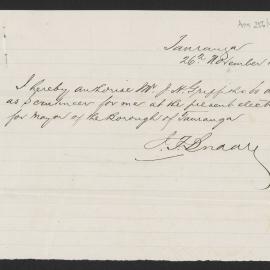 Tauranga
26th November
I hereby authorise Mr J. H. Griff to a
as Scrutineer for me at the present elect
for Mayor of the Borough of Tauranga